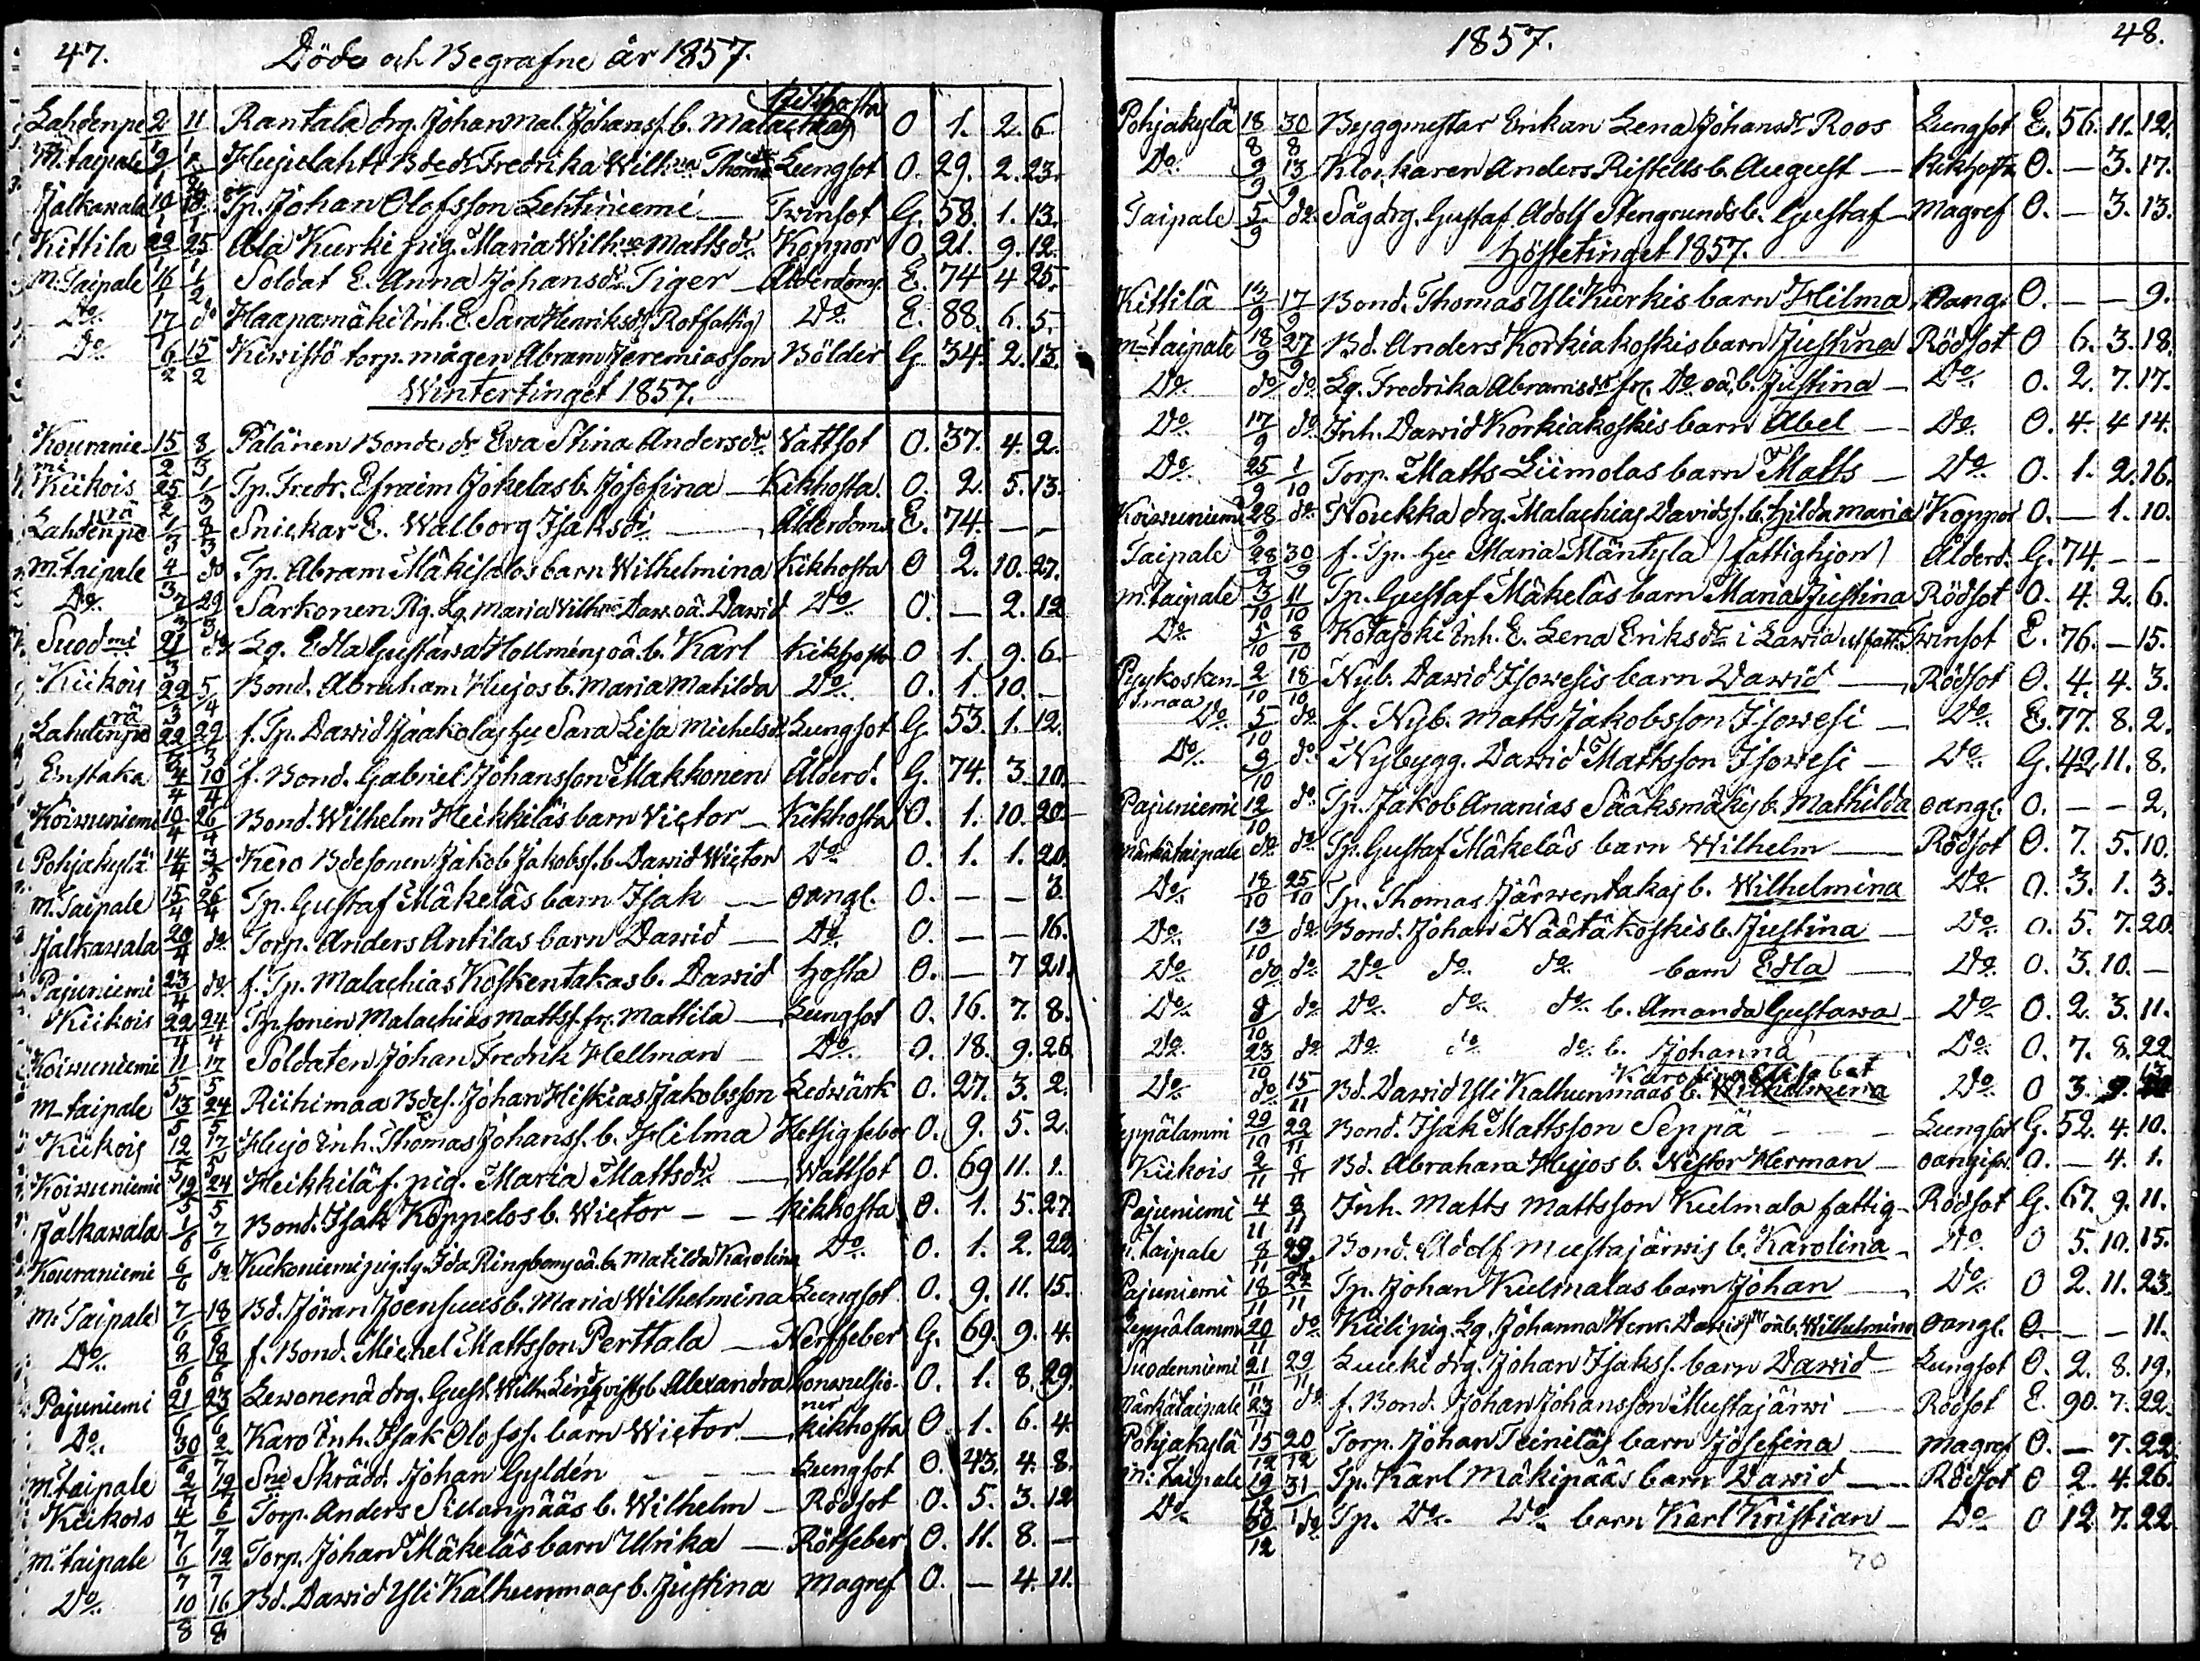 47. Döde och Begrafne år 1857.
Lahdenpe 2/1 11/1 Rantala drg. Johan Mal. Johanss. b. Malachias Kikhosta O 1. 2. 6.
M. taipale 9/1 Hujulahti Bdedr Fredrika Wilhna Thoms dr Lungsot O. 29. 2. 23.
Jalkawala 10/1 18/1 Tp. Johan Olofsson Lehtiniemi — Twinsot G. 58. 1. 13.
Kittila 22/1 25/1 Ala Kurki pig. Maria Wilhna Mattsdr Koppor O 21. 9. 12.
M. Taipale 16/1 1/2 Soldat E. Anna Johansdr Tiger — Ålderdoms. E. 74 4 25.
Do. 17/1 do Haapamäki Inh. E. Sara Henriksdr (Rotfattig) Do. E. 88. 6. 5.
Do. 6/2 15/2 Kiwistö torp. mågen Abram Jeremiasson Bölder G. 34. 2. 13.
Wintertinget 1857.
Kouraniemi 15/2 8/3 Pälänen Bonde dr Eva Stina Andersdr Vattsot O. 37. 4. 2.
Kiikois 25/2 1/3 Tp. Fredr. Efraim Jokelas b. Josefina — Kikhosta O. 2. 5. 13.
Lahdenperä 1/3 8/3 Snickar E. Walborg Isaksdr — Ålderdoms E. 74. — —
M. taipale 4/3 do Tp. Abram Mäkisalos barn Wilhelmina Kikhosta O 2. 10. 27.
Do. 7/3 29/3 Sarkonen Pig. Lg. Maria Wilhna Daw. oä. Dawid Do. O. — 2. 12
Suodmi 21/3 do. Lg. Edla Gustawa Hollméns oä. b. Karl Kikhosta O 1. 9. 6.
Kiikois 22/3 5/4 Bond. Abraham Hujos b. Maria Matilda Do. O. 1. 10. —
Lahdenperä 22/3 29/3 f. Tp. Dawid Jaakolas Hu Sara Lisa Michelsdr Lungsot G. 53. 1. 12.
Enstaka 4/4 10/4 f. Bond. Gabriel Johansson Makkonen Ålderd. G. 74. 3. 10.
Koiwuniemi 10/4 26/4 Bond. Wilhelm Heikkiläs barn Victor — Kikhosta O. 1. 10. 20.
Pohjakylä 14/4 3/5 Kero Bdesonen Jakob Jakobss. b. Dawid Wictor Do. O. 1. 1. 20.
M. Taipale 15/4 26/4 Tp. Gustaf Mäkeläs barn Isak — oangl. O. — — 3.
Jalkawala 20/4 do. Torp. Anders Antilas barn Dawid — Do. O. — — 16.
Pajuniemi 23/4 do. f. Tp. Malachias Koskentakas b. Dawid Hosta O. — 7 21.
Kiikois 22/4 24/4 Tpsonen Malachias Mattss. fr. Mattila — Lungsot O. 16. 7. 8.
Koiwuniemi 11/5 17/5 Soldaten Johan Fredrik Hellman — Do. O. 18. 9. 26
M. taipale 13/5 24/5 Riihimaa Bdes. Johan Hiskias Jakobsson Ledwärk O. 27. 3. 2.
Kiikois 12/5 17/5 Hujo Inh. Thomas Johanss. b. Hilma Hetsig feber O. 9. 5. 2.
Koiwuniemi 19/5 24/5 Heikkilä f. pig. Maria Mattsdr — Wattsot O. 69 11. 1.
Jalkawala 1/6 7/6 Bond. Isak Koppelos b. Wictor — — Kikhosta O. 1. 5. 27.
Kouraniemi 6/6 do. Kukoniemi pig. Lg. Ida Ringboms oä. b. Matilda Karolina Do. O. 1. 2. 22.
M. Taipale 7/6 18/6 Bd. Jöran Joensuus b. Maria Wilhelmina Lungsot O. 9. 11. 15.
Do. 8/6 18/6 f. Bond. Michel Mattsson Perttala — Nerffeber G. 69. 9. 4.
Pajuniemi 21/6 23/6 Lewonenä drg. Gust. Wilh. Lindqvists b. Alexandra Konwulsioner O. 1. 8. 29.
Do. 30/6 2/7 Karo Inh. Isak Olofss. barn Wictor — Kikhosta O 1. 6. 4.
M. taipale 2/7 12/7 Sne Skrädd. Johan Gyldén — — Lungsot O. 43. 4. 8.
Kiikois 4/7 6/7 Torp. Anders Sillanpääs b. Wilhelm — Rödsot O. 5. 3. 12
M. taipale 6/7 12/7 Torp. Johan Mäkeläs barn Ulrika — Rötfeber O. 11. 8. —
Do. 10/8 16/8 Bd. Dawid Yli Kalhunmaas b. Justina Magref O. — 4. 11.
1857. 48.
Pohjakylä 18/8 30/8 Byggmestar Enkan Lena Johansdr Roos Lungsot E. 56. 11. 12.
Do. 9/9 13/9 Klockaren Anders Ristells b. August — Kikhosta O. — 3. 17.
Taipale 5/9 do. Sågdrg. Gustaf Adolf Stengrunds b. Gustaf — Magref O. — 3. 13.
Höstetinget 1857.
Kittilä 13/9 17/9 Bond. Thomas Yli Kurkis barn Hilma oang. O. — — 9.
M. taipale 18/9 27/9 Bd. Anders Korkiakoskis barn Justina Rödsot O 6. 3. 18.
Do. do do. Lg. Fredrika Abramsdr fr. Do oä. b. Justina — Do. O. 2. 7. 17.
Do. 17/9 do. Inh. Dawid Korkiakoskis barn Abel — Do. O. 4. 4 14.
Do. 25/9 1/10 Torp. Matts Liimolas barn Matts — Do. O. 1. 2. 16.
Koiwuniemi 28/9 do. Noukka drg. Malachias Davidss. b. Hilda Maria Koppor O. — 1. 10.
Taipale 28/9 30/9 f. Tp. Hu Maria Mäntylä (fattighjon) Ålderd. G. 74. — —
M. taipale 3/10 11/10 Tp. Gustaf Mäkeläs barn Maria Justina Rödsot O. 4. 2. 6.
Do. 5/10 8/10 Kotajoki Inh. E. Lena Eriksdr i Lawia Twinsot E. 76. — 15.
Pyykoskenmaa 2/10 18/10 Nyb. Dawid Isowesis barn Dawid — Rödsot O. 4. 4. 3.
Do. 5/10 do. f. Nyb. Matts Jakobsson Isowesi — Do. E. 77. 8. 2.
Do. 9/10 do. Nybygg. Dawid Mattsson Isowesi — Do. G. 42. 11. 8.
Pajuniemi 12/10 do. Tp. Jakob Ananias Sääksmäkis b. Mathilda oangl. O. — — 2.
Märkätaipale do. do. Tp. Gustaf Mäkeläs barn Wilhelm — Rödsot O. 7. 5. 10.
Do. 18/10 25/10 Tp. Thomas Järwentakas b. Wilhelmina Do. O. 3. 1. 3.
Do. 13/10 do. Bond. Johan Näätäkoskis b. Justina — Do. O. 5. 7. 20.
Do. do do. Do. do. do. barn Edla — Do. O. 3. 10. —
Do. 8/10 do. Do. do. do. b. Amanda Gustawa — Do. O. 2. 3. 11.
Do. 23/10 do. Do. do. do. b. Johanna — Do. O. 7. 8. 22
Do. do. 15/11 Bd. Dawid Yli Kalhunmaas b. Karolina Elisabet Do. O 3. 9. 13
eppälammi 29/10 22/11 Bond. Isak Mattsson Seppä — — Lungsot G. 52. 4. 10.
Kiikois 2/11 8/11 Bd. Abraham Hujos b. Nestor Herman — oangifw. O. — 4. 1.
Pajuniemi 4/11 8/11 Inh. Matts Mattsson Kulmala fattig — Rödsot G. 67. 9. 11.
M. taipale 8/11 29/11 Bond. Adolf Mustajärwis b. Karolina — Do. O 5. 10. 15.
Pajuniemi 18/11 22/11 Tp. Johan Kulmalas barn Johan — Do. O 2. 11. 23.
Leppälammi 20/11 do. Kuli pig. Lg. Johanna Henr. Dawidsdr oä b. Wilhelmina oangl. O — — 11.
Suodenniemi 21/11 29/11 Luuki drg. Johan Isakss. barn Dawid — Lungsot O. 2. 8. 19.
Märkätaipale 23/11 do. f. Bond. Johan Johansson Mustajärwi — Rödsot E. 90. 7. 22.
Pohjakylä 15/12 20/12 Torp. Johan Teiniläs barn Josefina — Magref O. — 7. 22
M. Taipale 19/12 31/12 Tp. Karl Mäkipääs barn Dawid — Rödsot O 2. 4. 26.
Do. 30/12 do. Tp. Do. Do. barn Karl Kristian — Do. O 12. 7. 22.
70